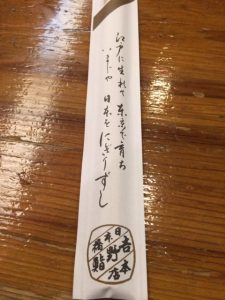 江戸に生れて 東京で育ち
いまじゃ 日本をにぎりずし
日本橋
吉野鮨
本店